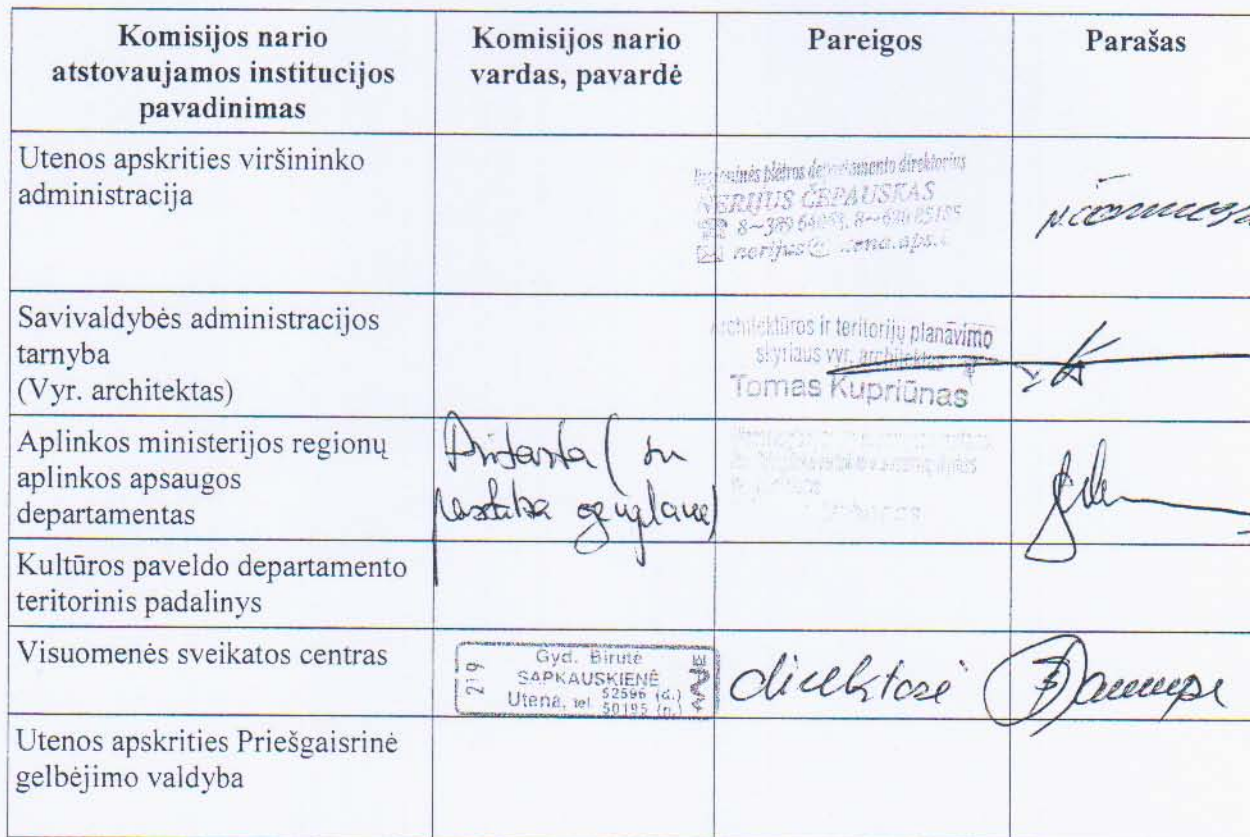 Komisijos nario
atstovaujamos institucijos
pavadinimas
Komisijos nario
vardas, pavardė
Pareigos
Parašas
Utenos apskrities viršininko
administracija
departamento direktorius
NERIJUS ČEPAUSKAS
Savivaldybės administracijos
tarnyba
(Vyr. architektas)
Architektūros ir teritorijų planavimo
skyriaus vyr. architektas
Tomas Kupriūnas
Aplinkos ministerijos regionų
aplinkos apsaugos
departamentas
Pritarta (su
Kultūros paveldo departamento
teritorinis padalinys
Visuomenės sveikatos centras
219
Gyd. Birutė
SAPKAUSKIENĖ
Utena, tel. 52596 (d.)
50195 (n.)
direktorė
Utenos apskrities Priešgaisrinė
gelbėjimo valdyba